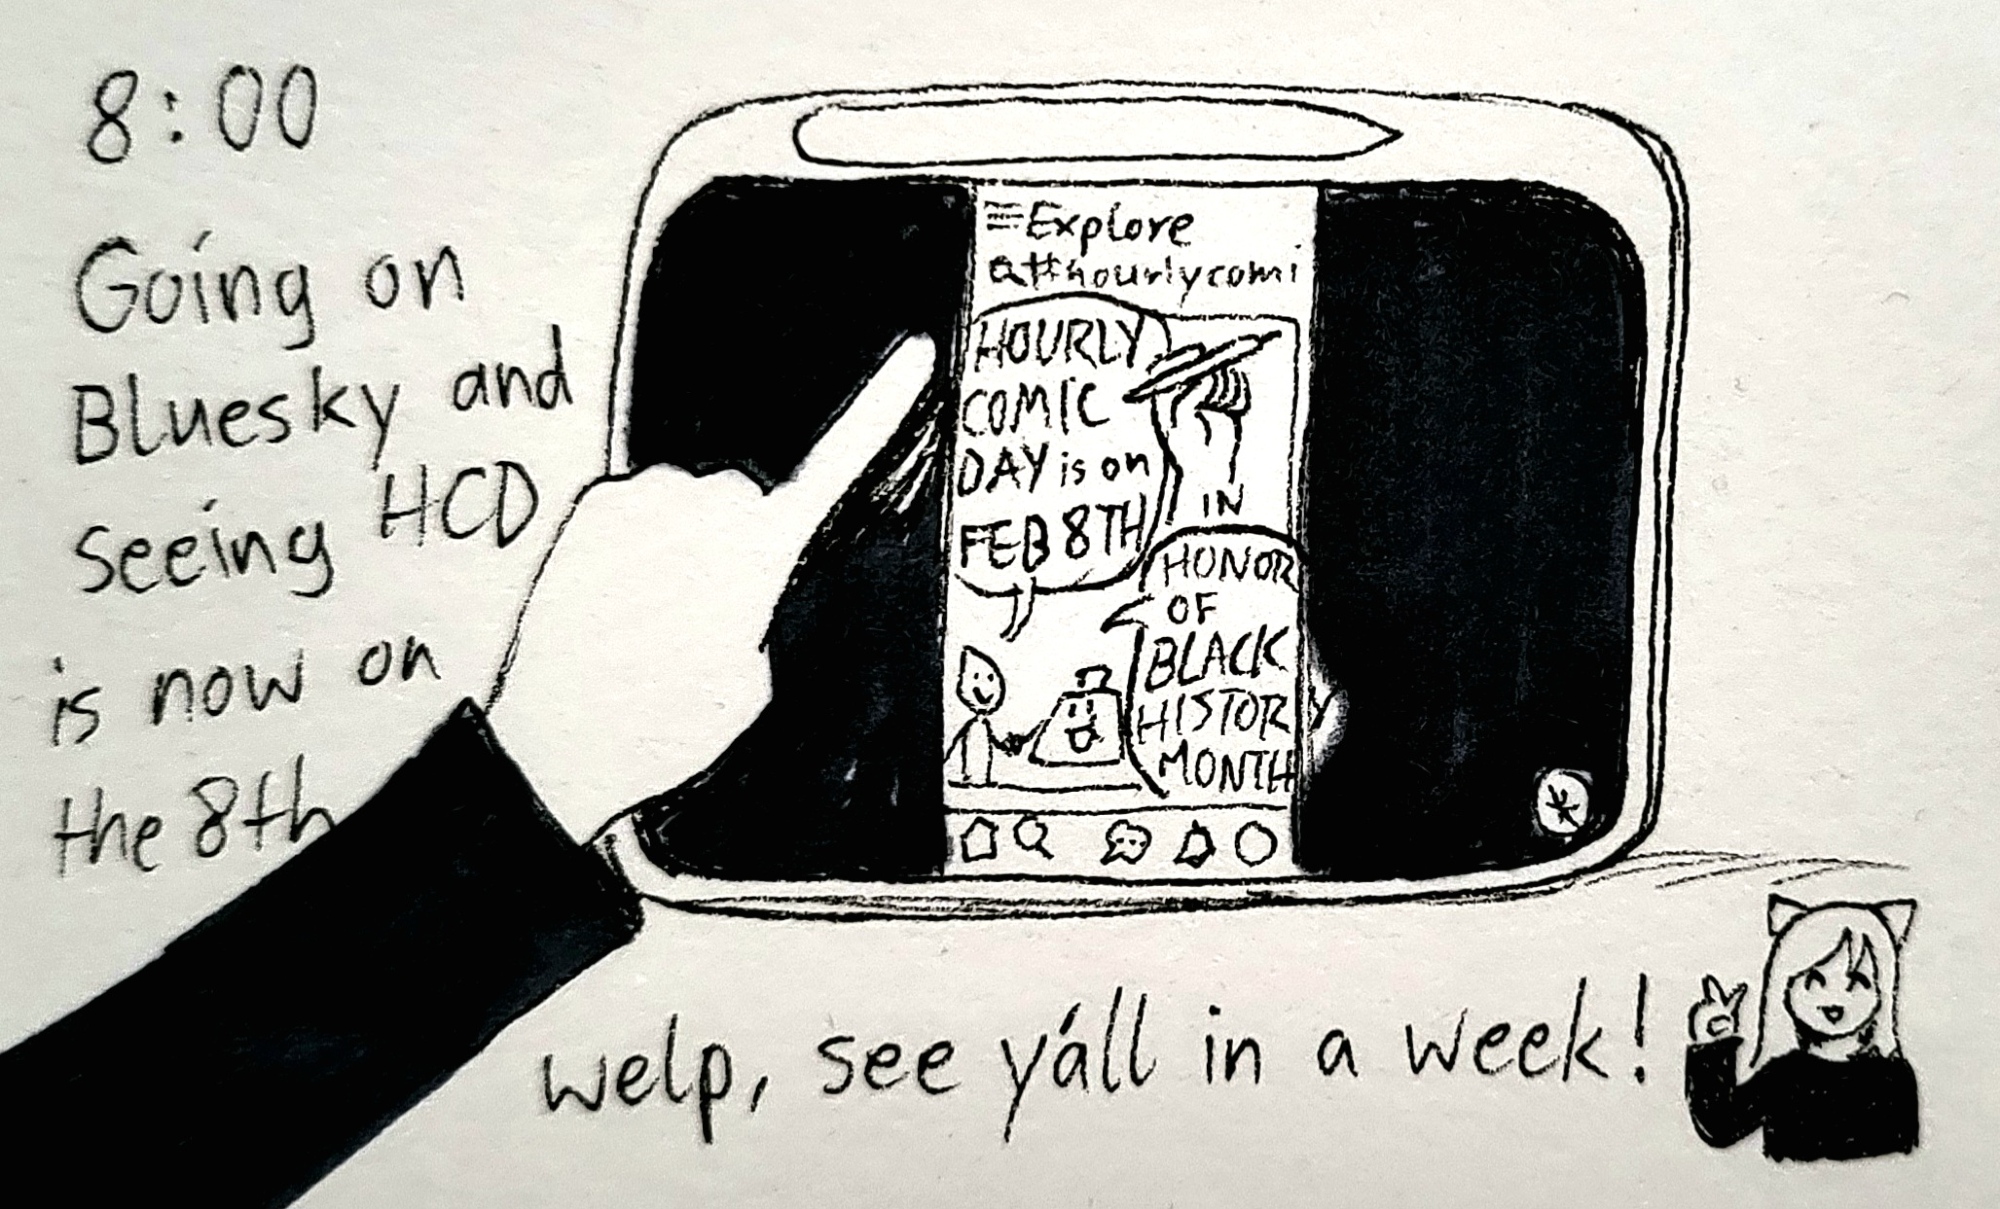 8:00
Going on
Bluesky and
seeing HCD
is now on
the 8th
Explore
#hourlycomi
HOURLY
COMIC
DAY is on
FEB 8TH
IN
HONOR
OF
BLACK
HISTORY
MONTH
welp, see y'all in a week!